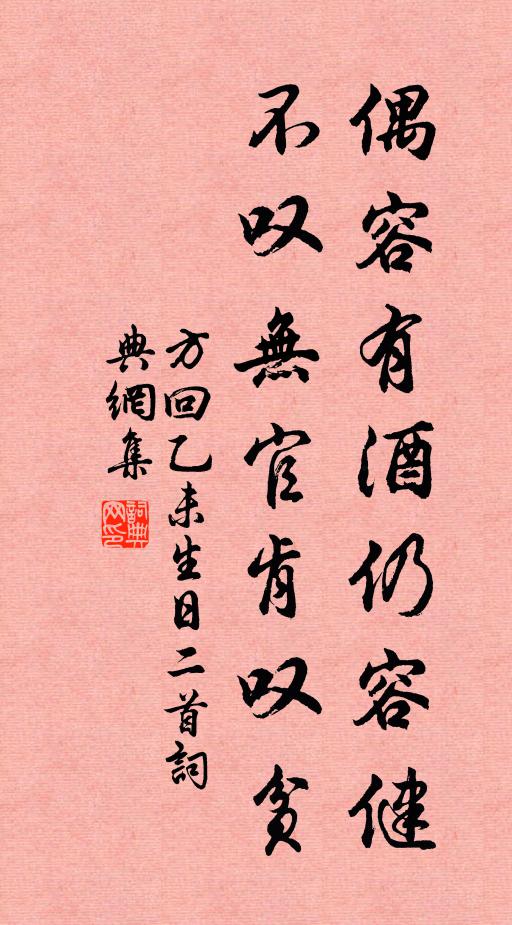 偶容有酒仍容健
不叹無官肯叹貧
方回乙未生日二首詞
典網集
詞典網印